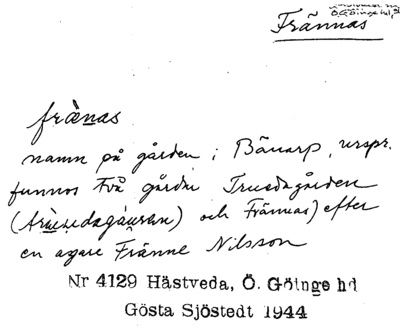 Frännas
Ö Göinge hd, Sk
frä̀nas
namn på gården i Bänarp, urspr.
funnos två gårdar Truedsgården
(trúədsgáuran) och Frännas) efter
en ägare Fränne Nilsson
Nr 4129 Hästveda, Ö. Göinge hd
Gösta Sjöstedt 1944